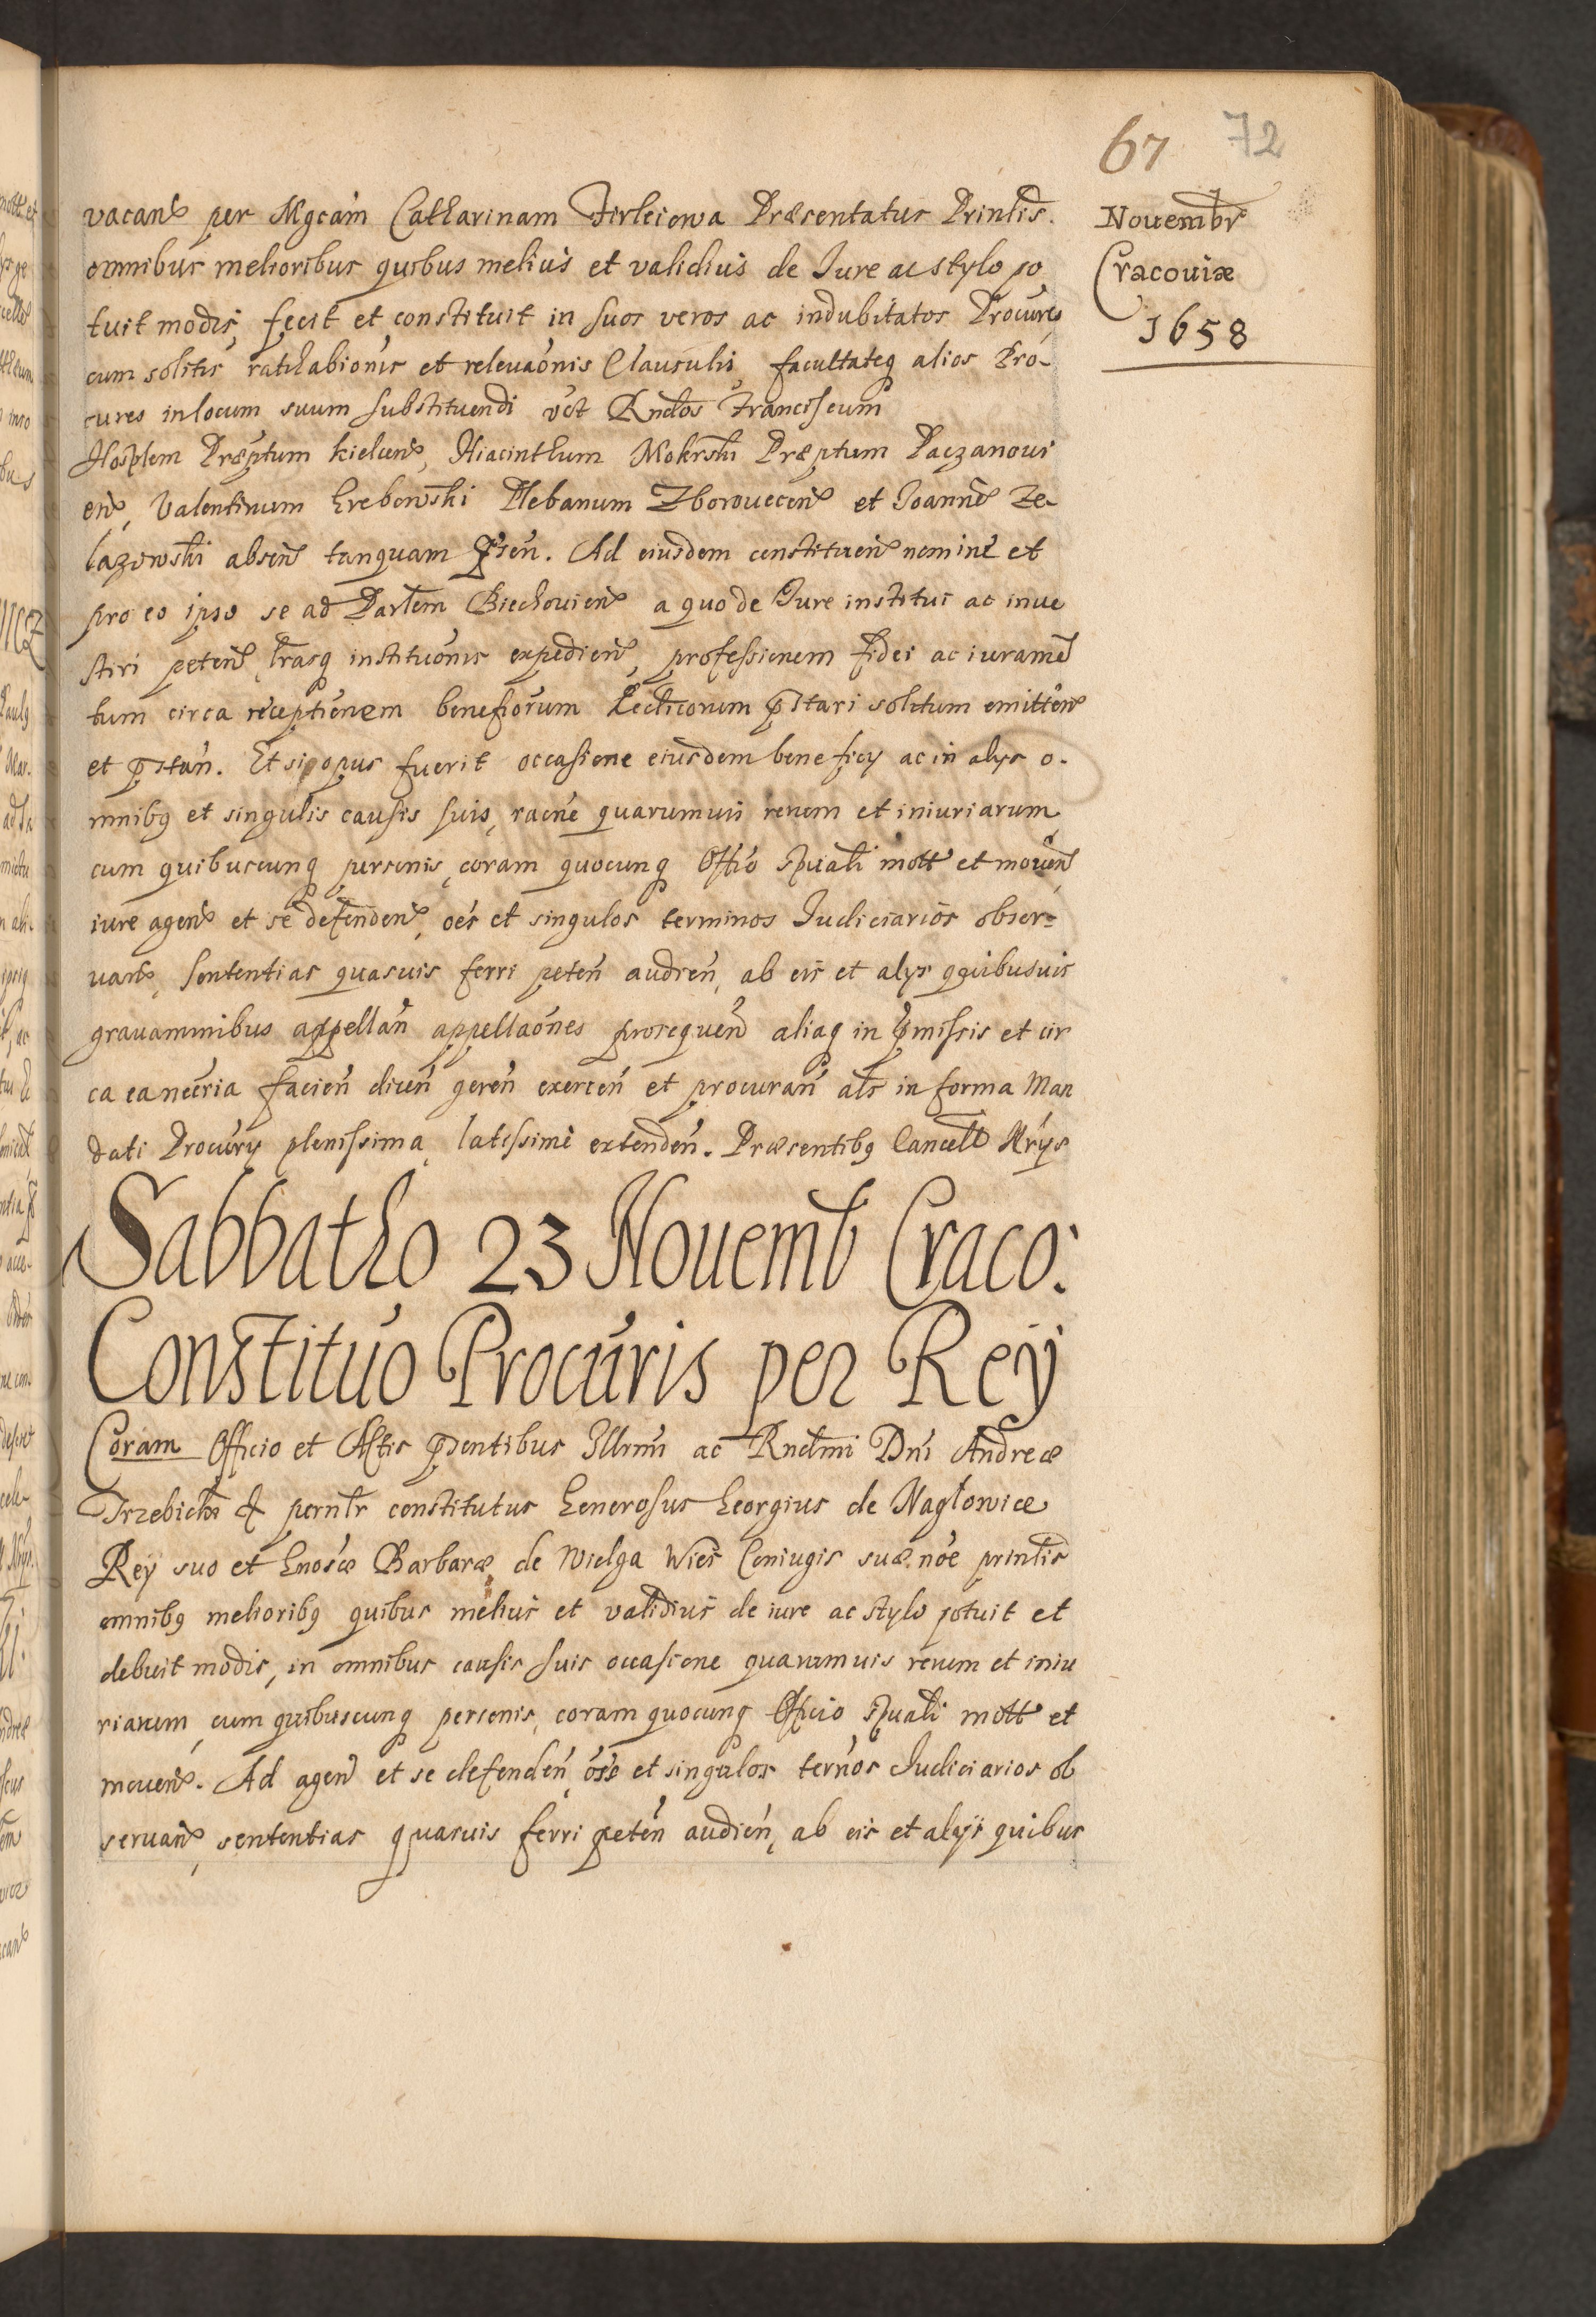 67 72
Nouembr
Cracouiæ
1658
vacan per Mgcam Catharinam Firleiowa Præsentatus Prinlis.
omnibus melioribus quibus melius et validius de Iure ac stylo po
tuit modis, fecit et constituit in suos veros ac indubitatos Procures
cum solitis ratihabionis et releuaonis Clausulis, facultateq alios Pro-
cures in locum suum substituendi vct Rndos Franciscum
Hosplem Præptum kielcen, Hiacinthum Mokrski Præptum Paczanoui
en, Valentinum Grebowski Plebanum Zborouecen et Ioannem Ze-
lazowski absen tanquam psen. Ad eiusdem constituen nomine et
pro eo ipso se ad Parlem Biechouien a quo de Iure institui ac inue
stiri peten lrasq instituonis expedien, professionem fidei ac iuramen
tum circa receptionem beneficiorum Ecclicorum pstari solitum emitten
et pstan. Et si opus fuerit occasione eiusdem beneficy ac in alys o-
mnibq et singulis causis suis, raone quarumuis rerum et iniuriarum
cum quibuscunq personis, coram quocunq Offio spuali mott et mouen
iure agen et se defenden, oes et singulos terminos Iudiciarios obser=
uan, sententias quasuis ferri peten audien, ab eis et alys quibusuis
grauaminibus appellan appellaones prosequen aliaq in pmissis et cir
ca ea necria facien dicen geren exercen et procuran als in forma Man
dati Procury plenissima, latissime extenden. Præsentibq Cancell Nrys
Sabbatho 23 Nouemb Craco:
Constituo Procuris per Rey
Coram Officio et Actis psentibus Illrmi ac Rndmi Dni Andreæ
Trzebicki & pernlr constitutus Generosus Georgius de Naglowice
Rey suo et Gnosæ Barbaræ de Wielga Wies Coniugis suæ noe prinlis
omnibq melioribq quibus melius et validius de iure ac stylo potuit et
debuit modis, in omnibus causis suis occasione quarumuis rerum et iniu
riarum, cum quibuscunq personis, coram quocunq Officio spuali mott et
mouen. Ad agen et se defenden oes et singulos ternos Iudiciarios ob
seruan, sententias quasuis ferri peten audien, ab eis et alijs quibus